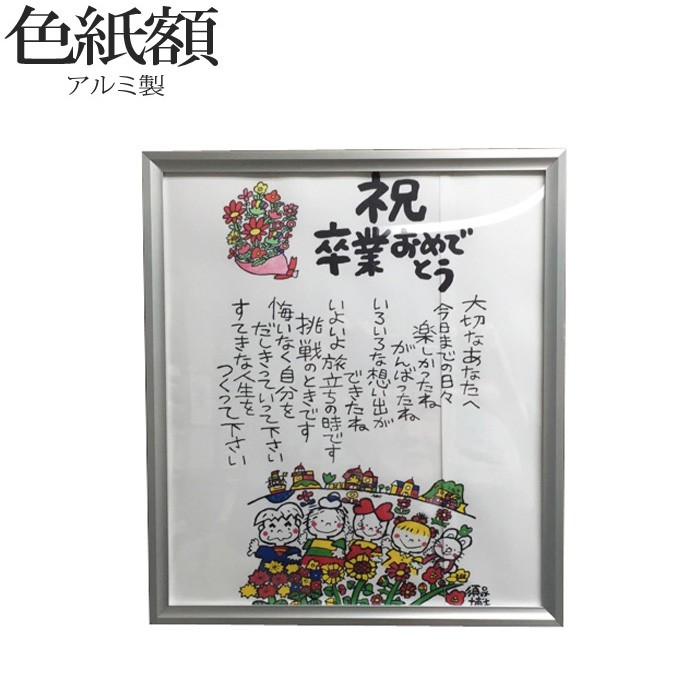 色紙額
アルミ製
祝
卒業おめで
とう
大切なあなたへ
今日までの日々
楽しかったね
がんばったね
いろいろな想い出が
できたね
いよいよ旅立ちの時です
挑戦のときです
悔いなく自分を
だしきっていって下さい
すてきな人生を
つくって下さい